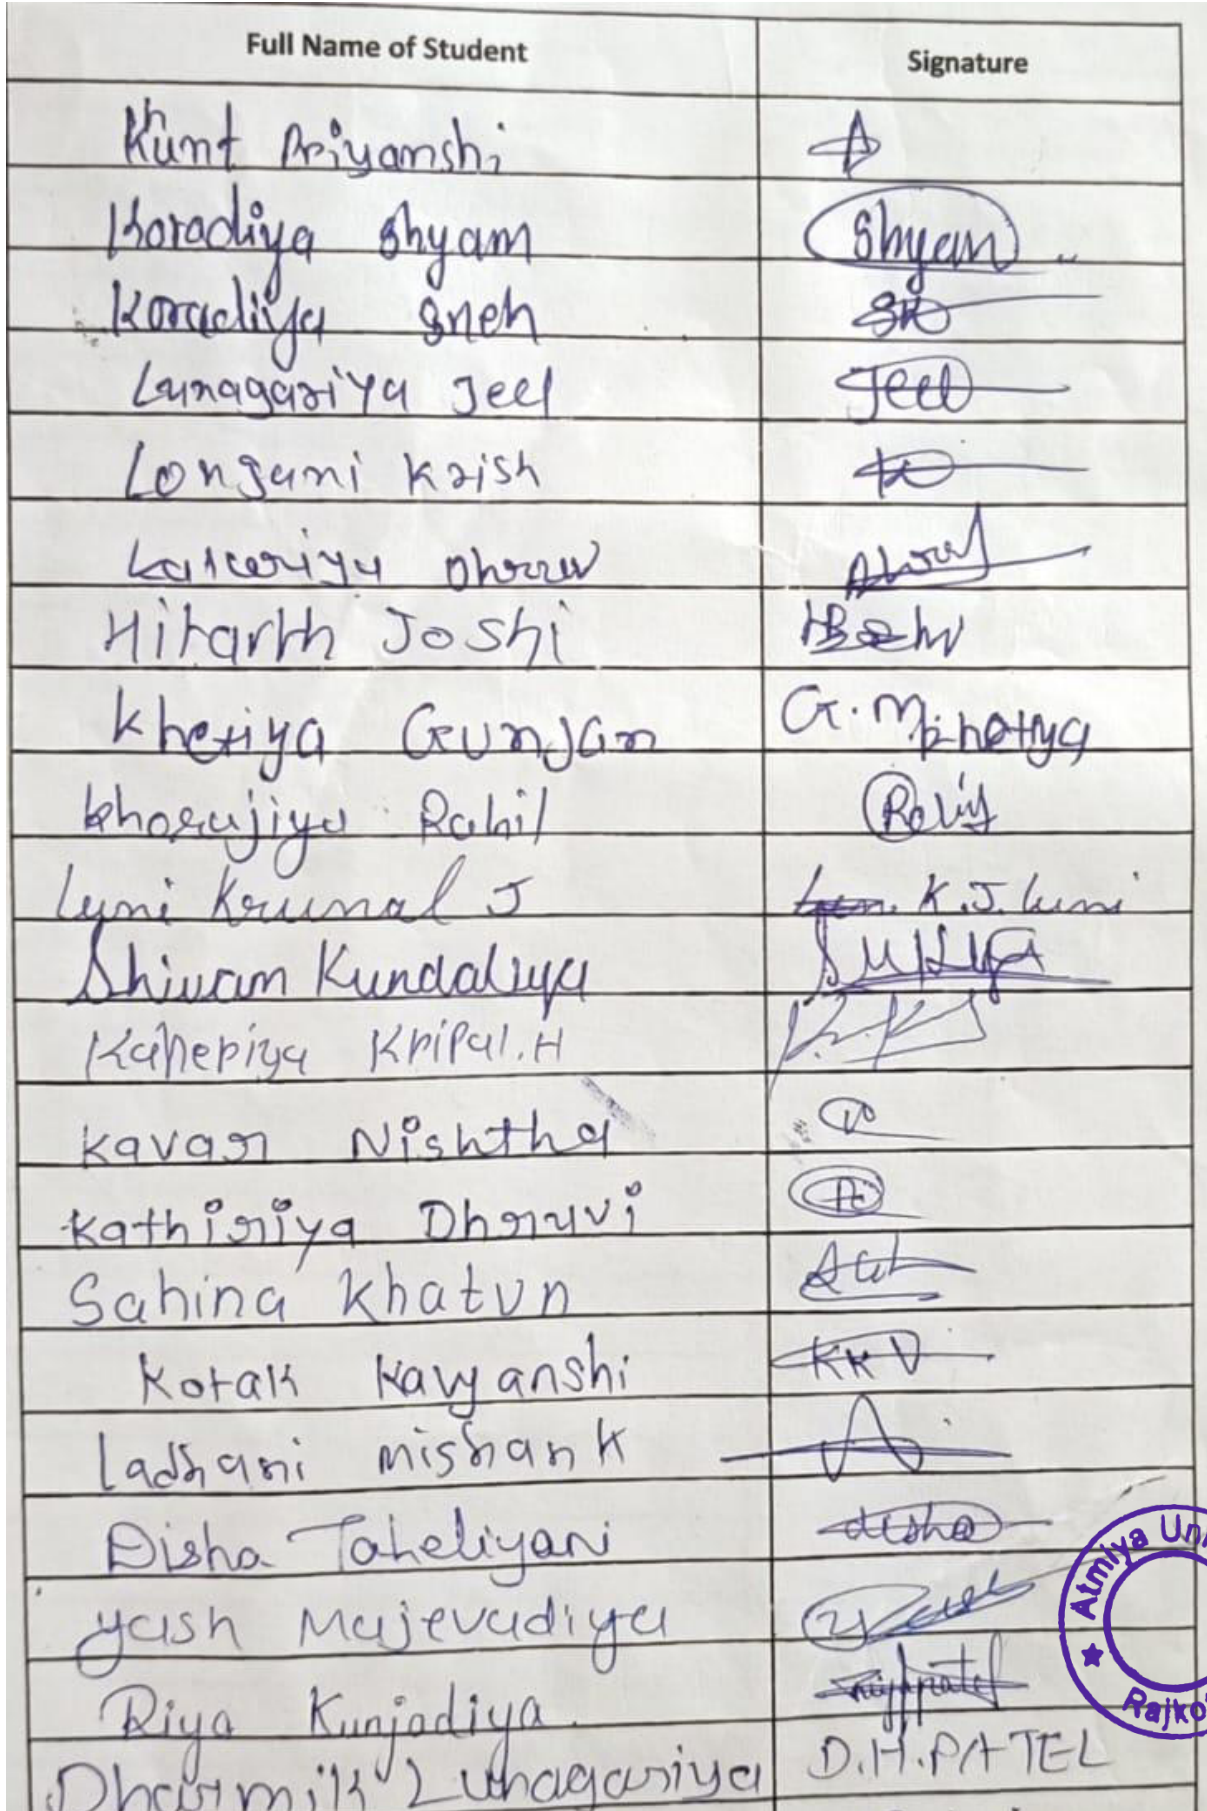 Full Name of Student Signature
Khunt Priyanshi
Koradiya Shyam Shyam
Koradiya Sneh
Lunagariya Jeel Jeel
Krish
Hitarth Joshi
Kheriya Gunjan
Rahil
Luni Krunal J K.J. Luni
Shivam Kundaliya
Kaneriya Kripal.H
Kavar Nishtha
Kathiriya Dhruvi
Sahina Khatun
Kotak Kavyanshi
Ladhani Mishank
Disha Taheliyani disha
Yash Majevadiya
Riya Kunjadiya.
Dharmik Lunagariya D.H.PATEL
Atmiya
Rajko